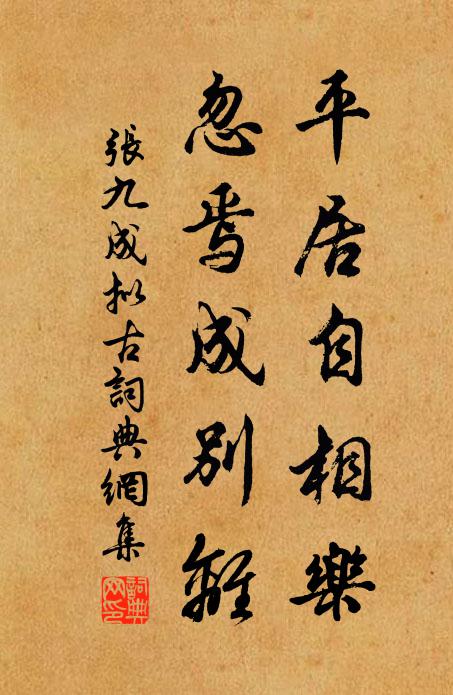 平居自相樂
忽焉成別離
張九成擬古詞典網集
詞典網印